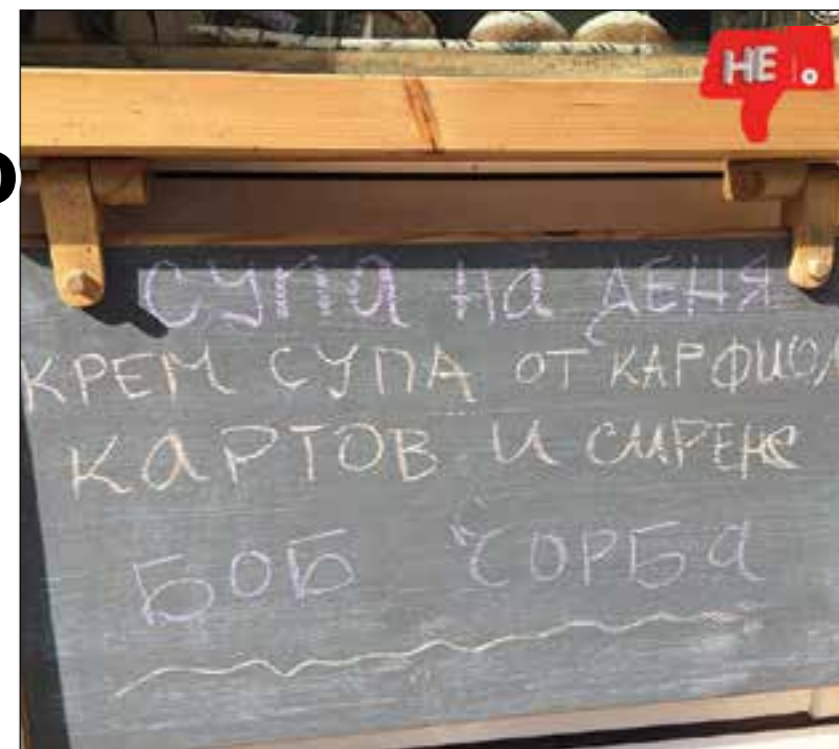 НЕ
СУПА НА ДЕНЯ
КРЕМ СУПА ОТ КАРФИОЛ
КАРТОВ И СИРЕНЕ
БОБ ЧОРБА